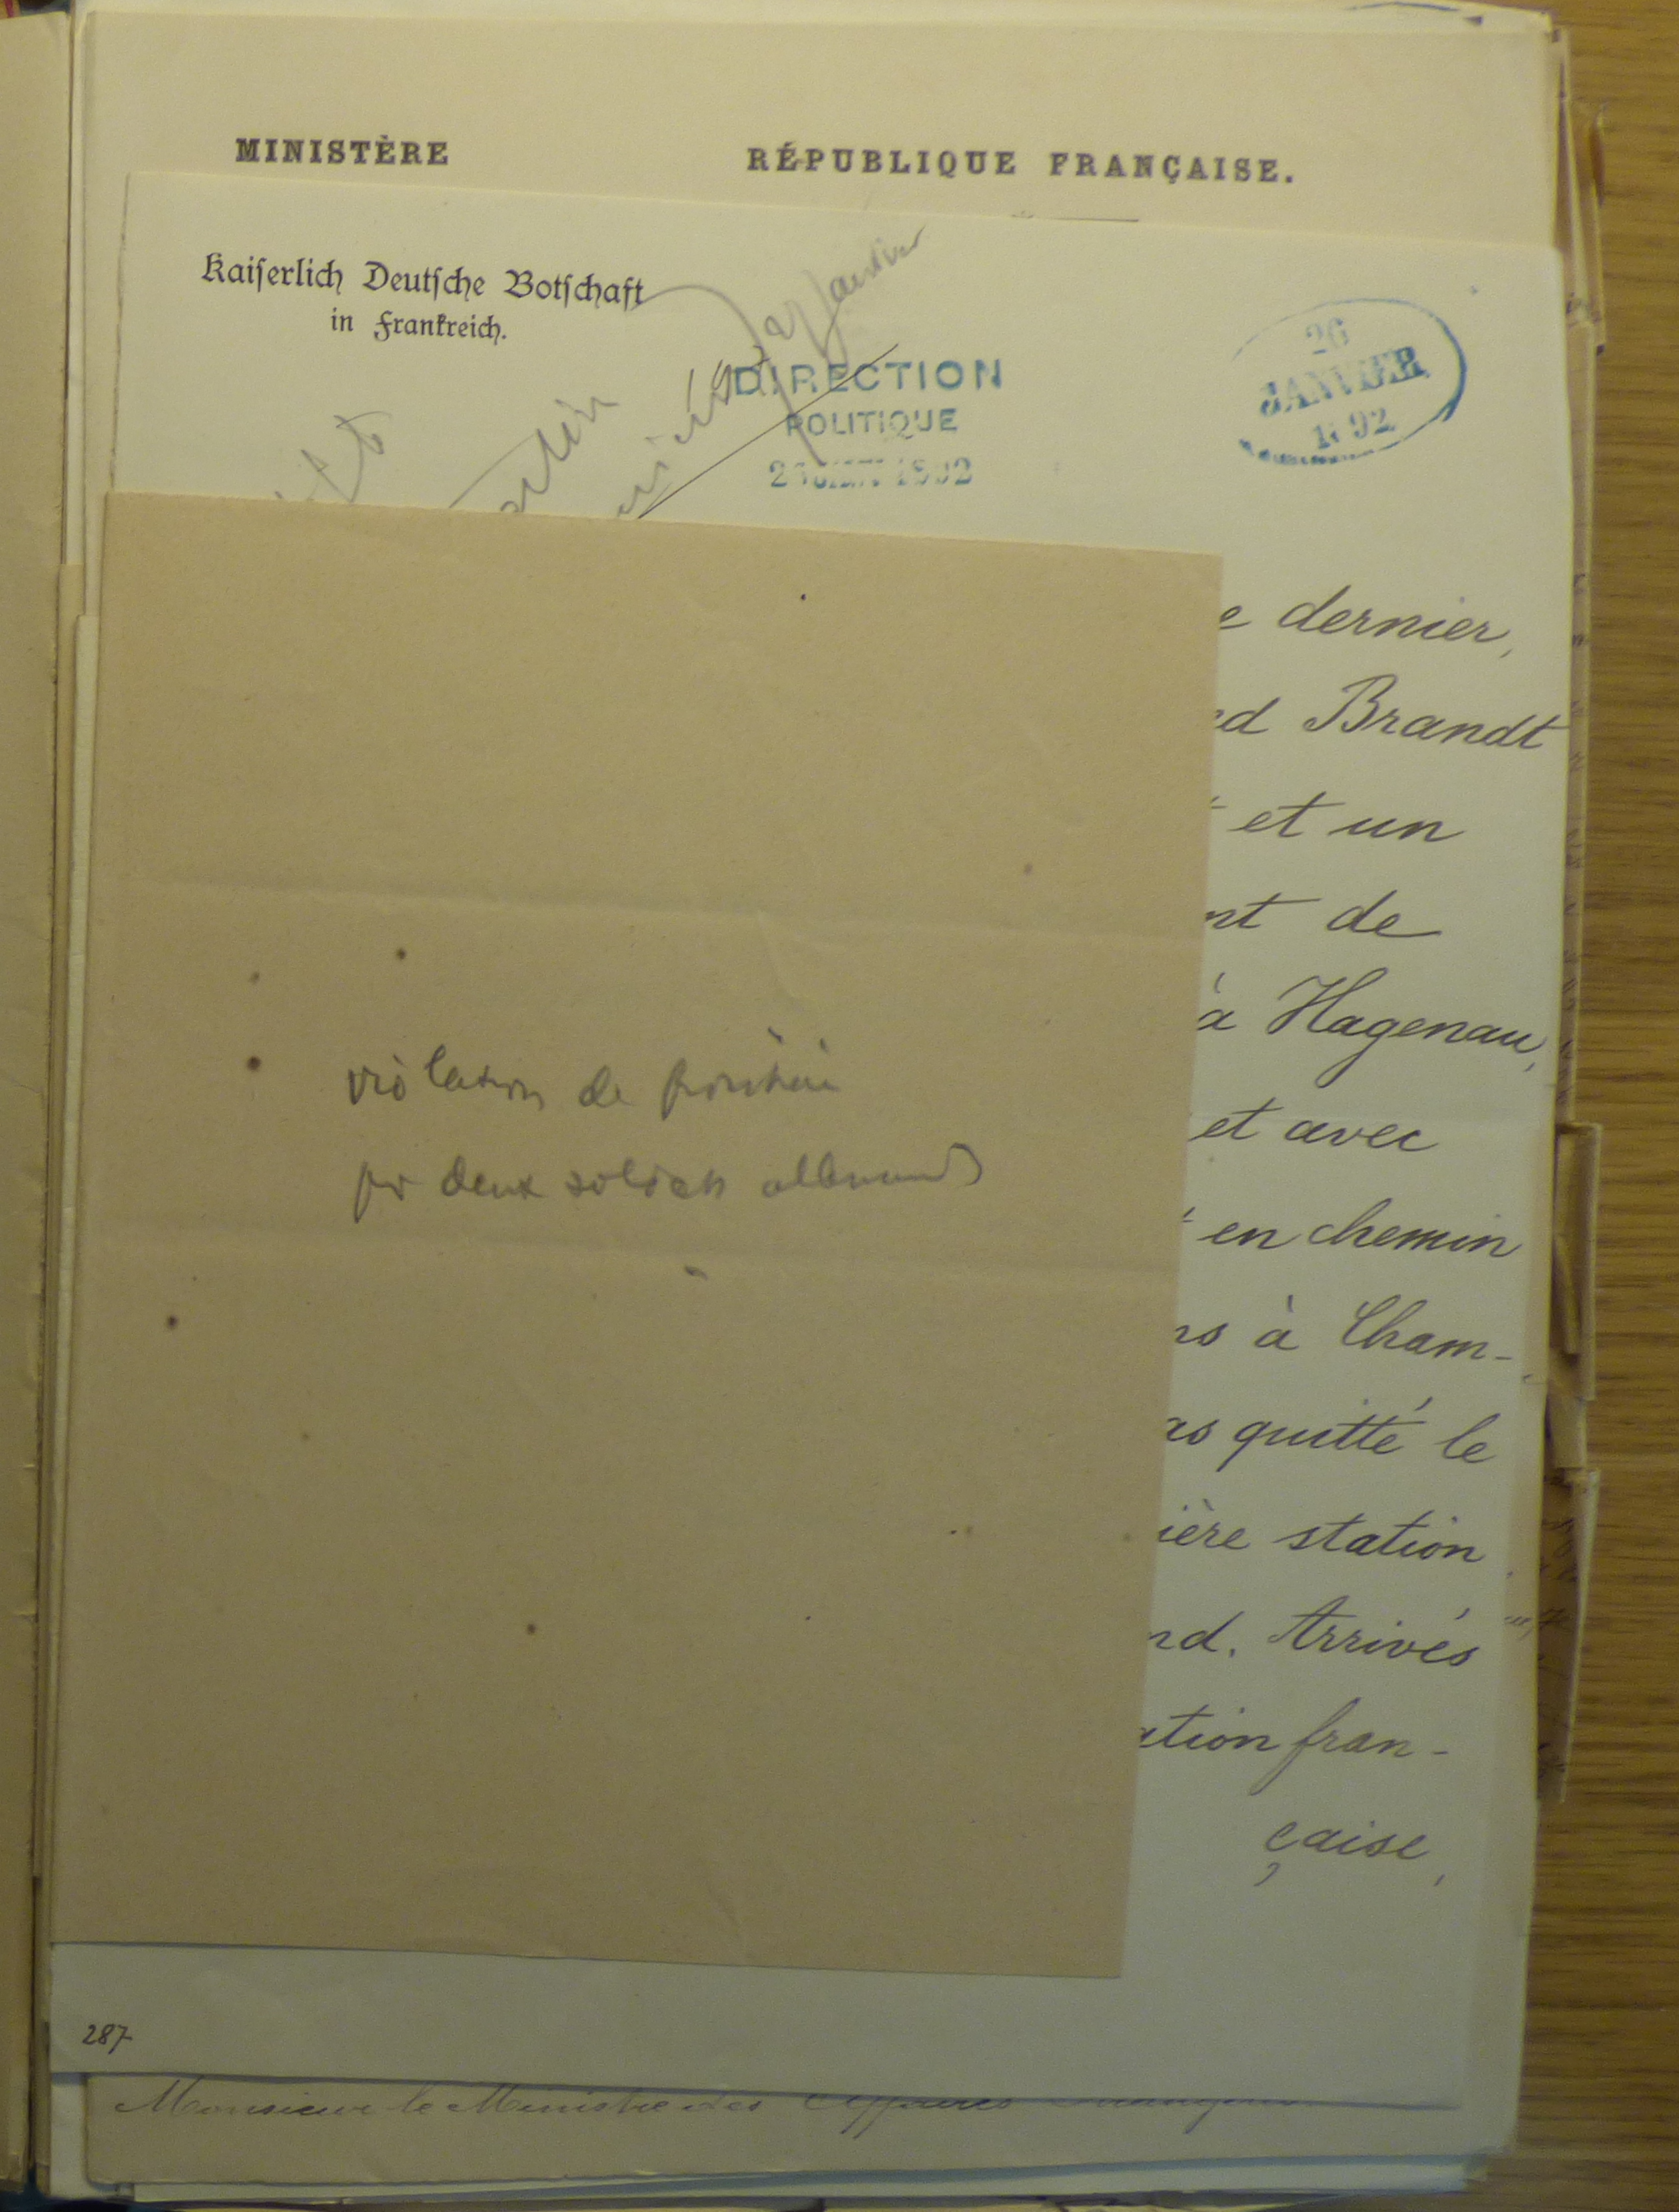 MINISTÈRE
RÉPUBLIQUE FRANÇAISE.
Kaiserlich Deutsche Botschaft
in Frankreich.
DIRECTION
POLITIQUE
26
JANVIER
1892
e dernier,
ed Brandt
et un
nt de
à Hagenau,
et avec
en chemin
ns à Cham-
as quitté le
ière station
nd. Arrivés
ation fran-
çaise,
violation de frontière
par deux soldats allemands
287
Monsieur le Ministre des Affaires